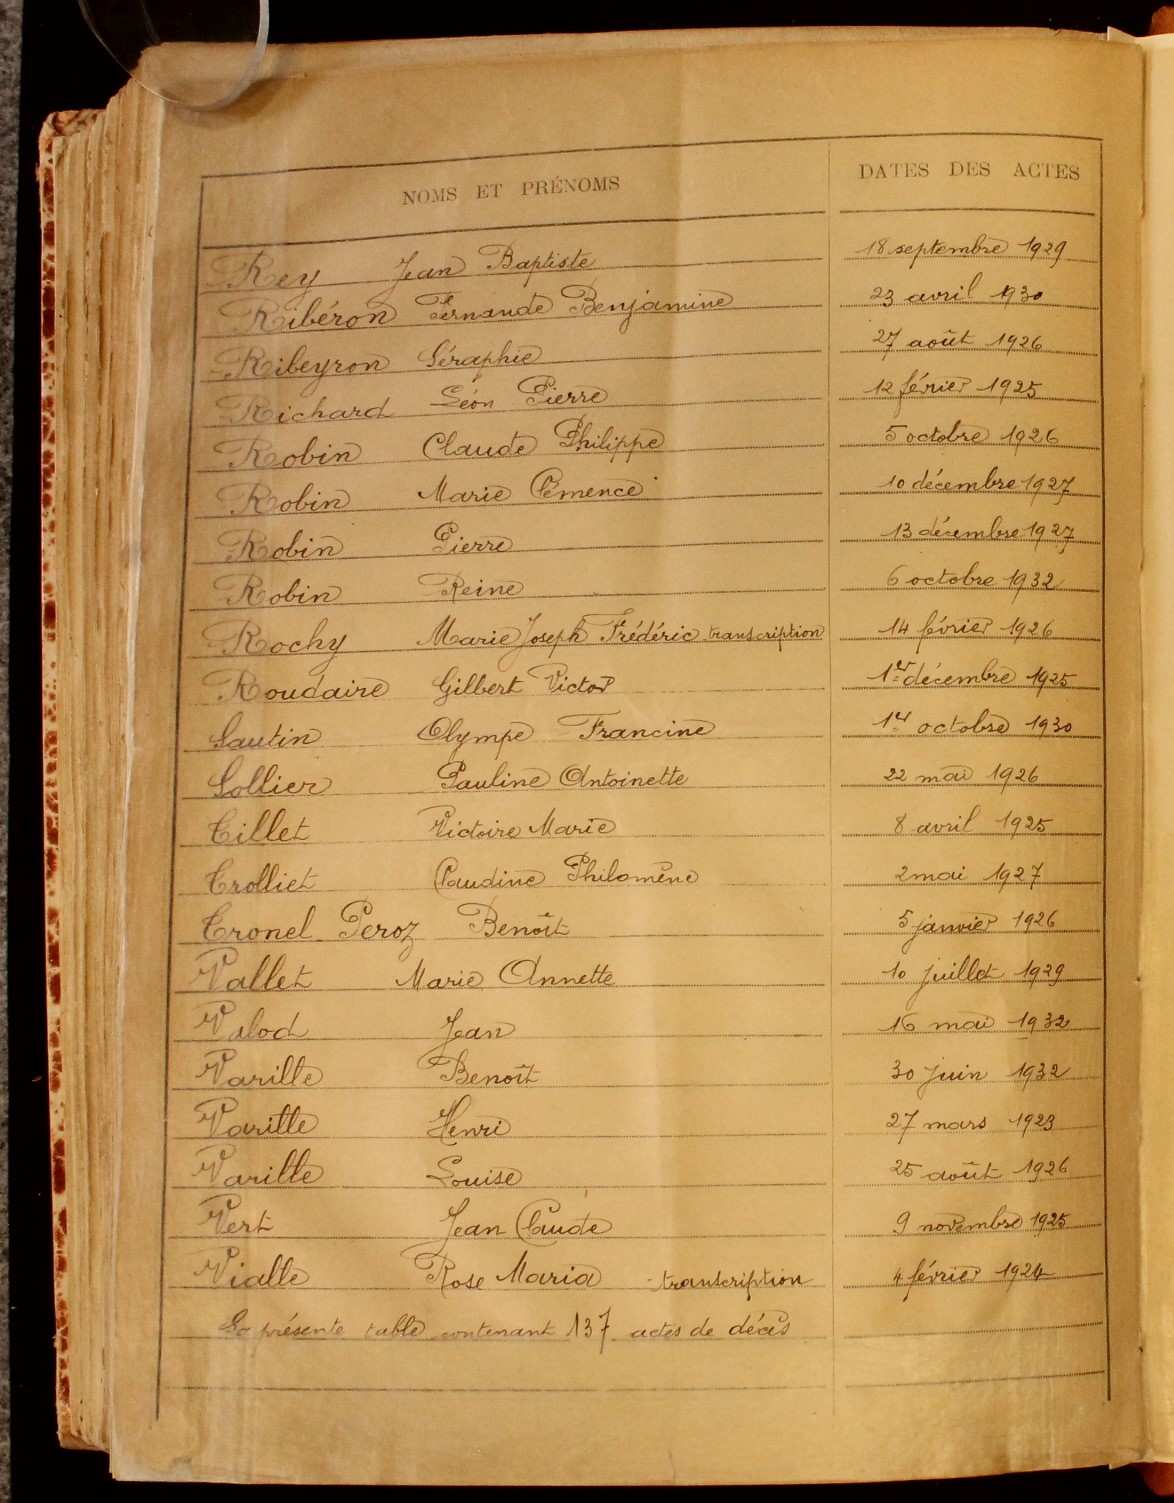 NOMS ET PRÉNOMS DATES DES ACTES
Rey Jean Baptiste 18 septembre 1929
Ribéron Fernande Benjamine 23 avril 1930
Ribeyron Séraphie 27 août 1926
Richard Léon Pierre 12 février 1925
Robin Claude Philippe 5 octobre 1926
Robin Marie Clémence 10 décembre 1927
Robin Pierre 13 décembre 1927
Robin Reine 6 octobre 1932
Rochy Marie Joseph Frédéric transcription 14 février 1926
Roudaire Gilbert Victor 1er décembre 1925
Sautin Olympe Francine 1er octobre 1930
Sollier Pauline Antoinette 22 mai 1926
Tillet Victoire Marie 8 avril 1925
Trolliet Claudine Philomène 2 mai 1927
Tronel Peroz Benoît 5 janvier 1926
Vallet Marie Annette 10 juillet 1929
Valod Jean 16 mai 1932
Varille Benoît 30 juin 1932
Varille Henri 27 mars 1923
Varille Louise 25 août 1926
Vert Jean Claude 9 novembre 1925
Vialle Rose Maria transcription 4 février 1924
La présente table contenant 137 actes de décès